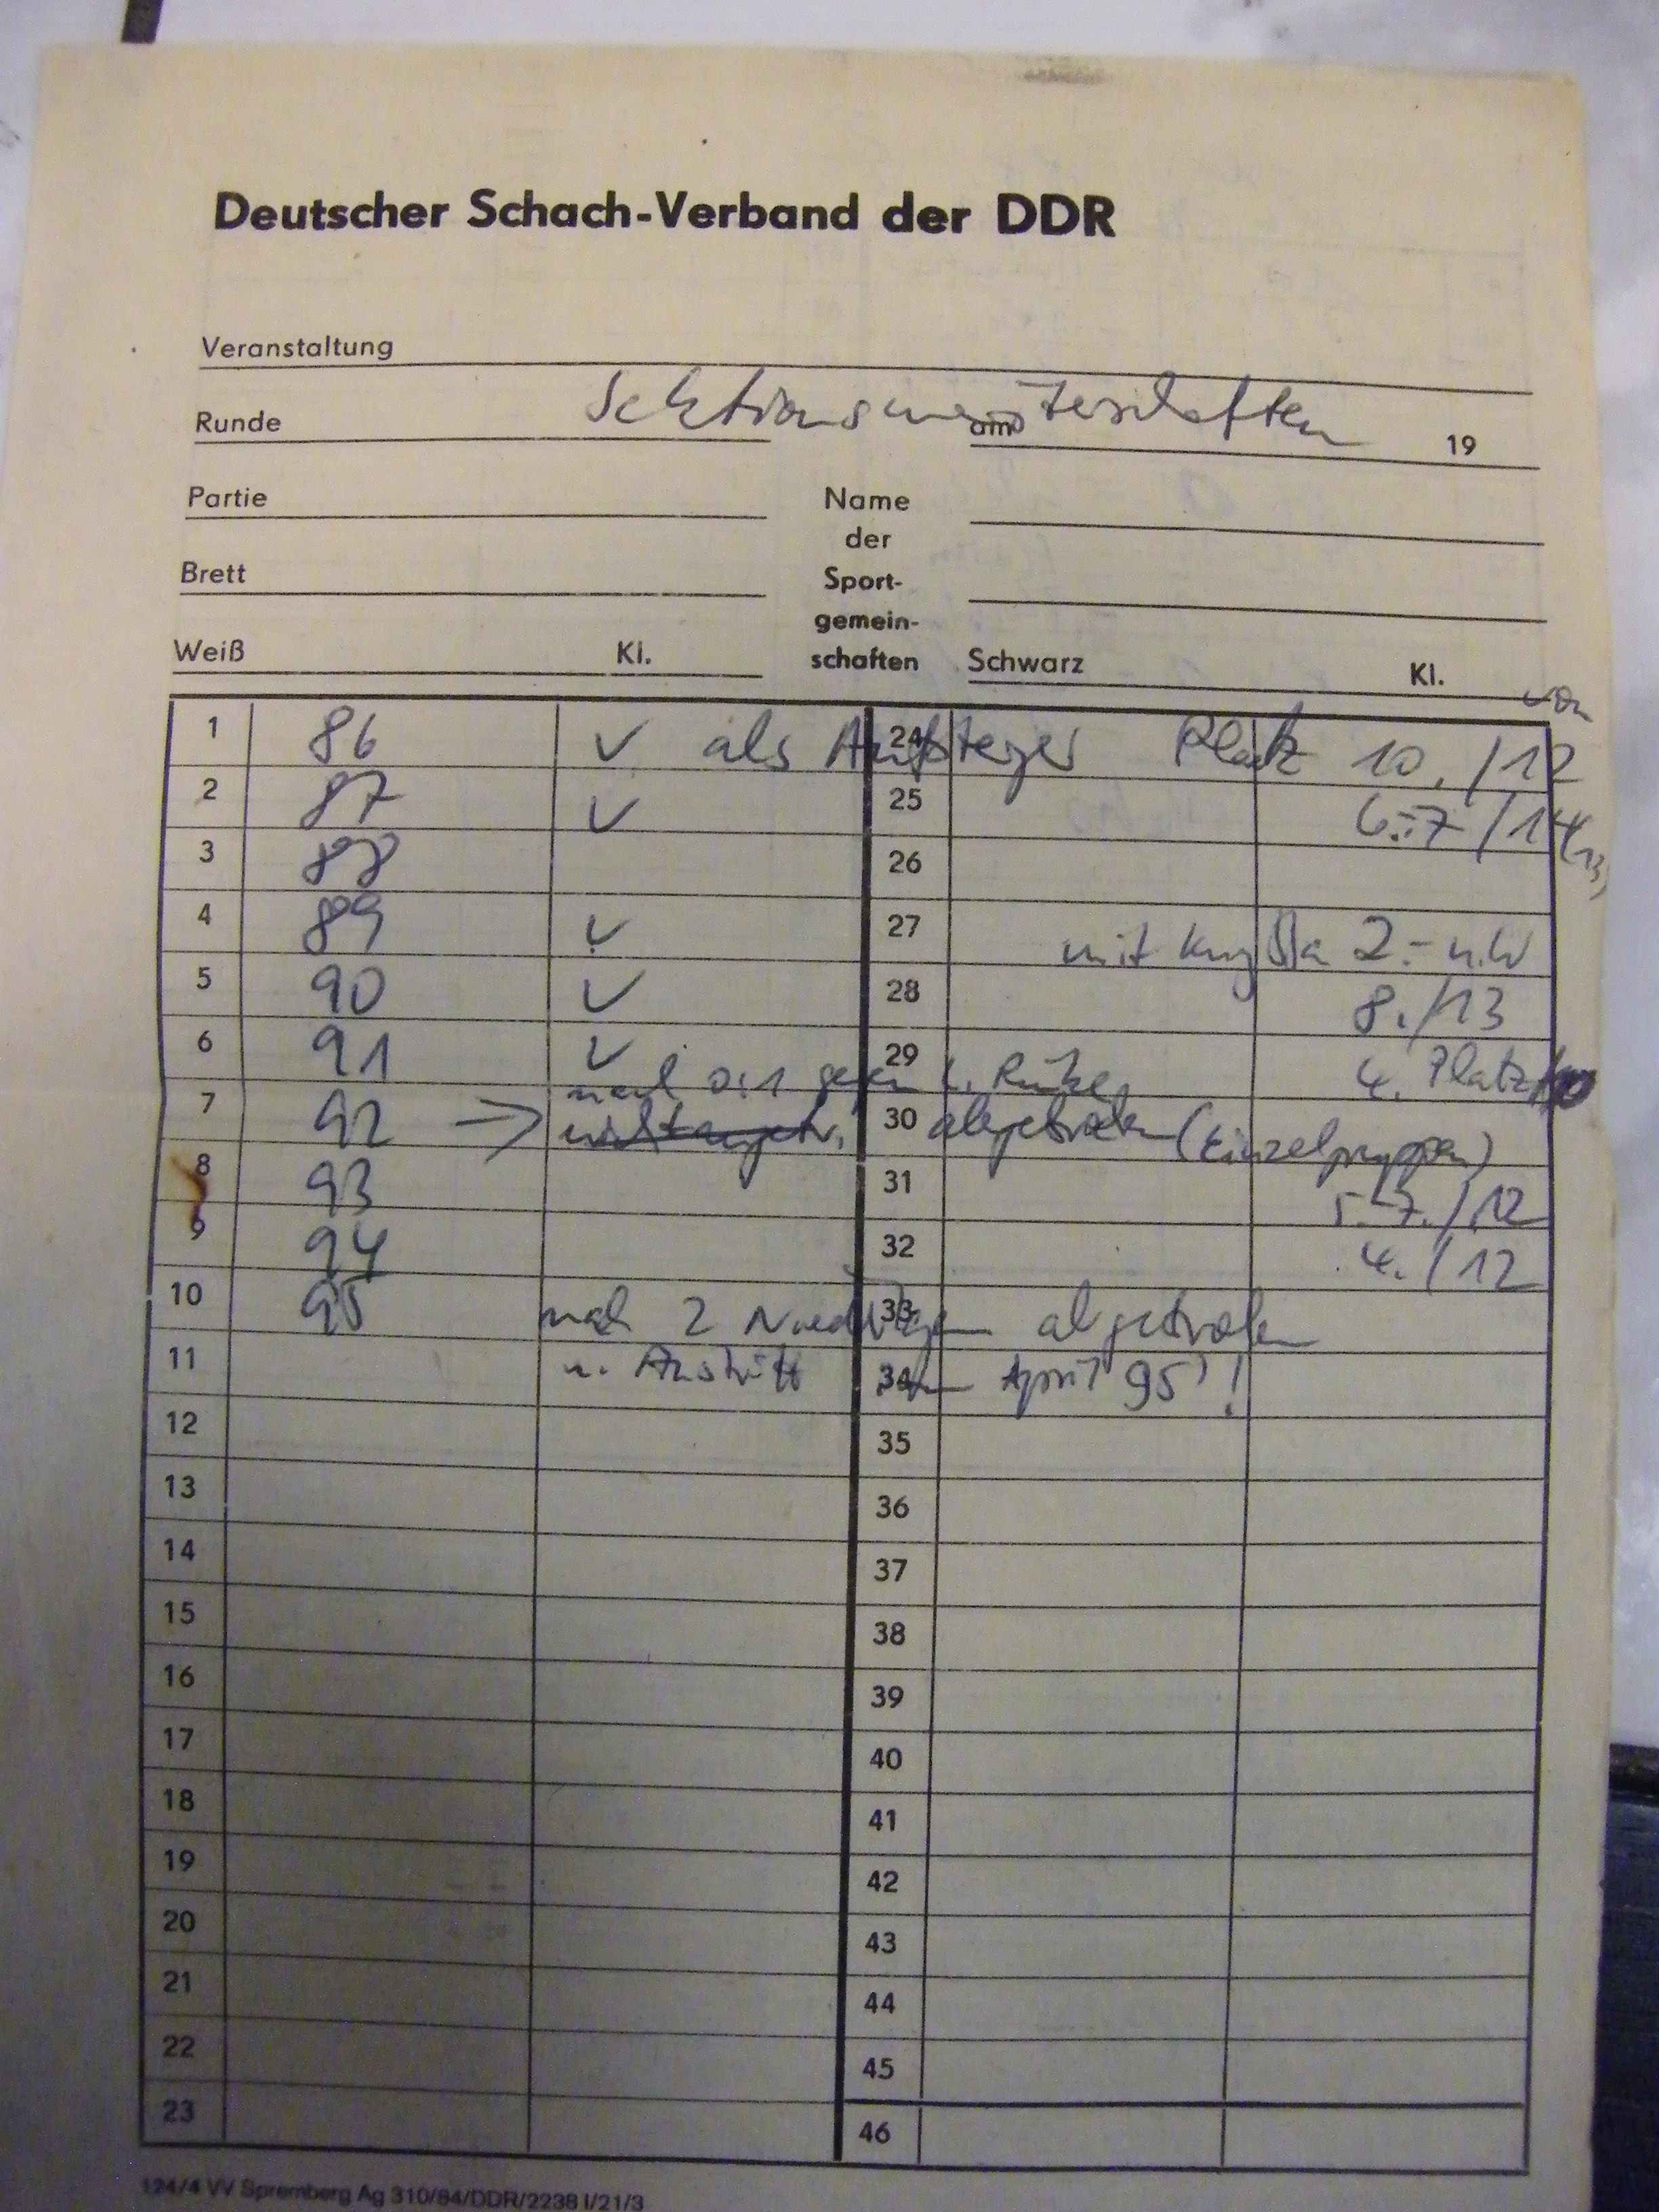 Deutscher Schach-Verband der DDR
Veranstaltung
Sektionsmeisterschaften
Runde am 19
Partie Name
der
Brett Sport-
gemein-
Weiß Kl. schaften Schwarz Kl.
von
1 86 V als Aufsteiger 24 Platz 10. /12
2 87 V 25 6.-7 /14 (13)
3 88 26
4 89 V 27 mit 2.-
5 90 V 28 8. /13
6 91 V 29 4. Platz /10
nach 0:1 gegen
7 92 → 30 abgetreten (Einzelgruppen)
8 93 31 5.-7. /12
9 94 32 4. /12
10 95 nach 2 Niederlagen 33 abgetreten
11 u. Austritt zum 34 April 95 !
12 35
13 36
14 37
15 38
16 39
17 40
18 41
19 42
20 43
21 44
22 45
23 46
124/4 VV Spremberg Ag 310/84/DDR/2238 I/21/3